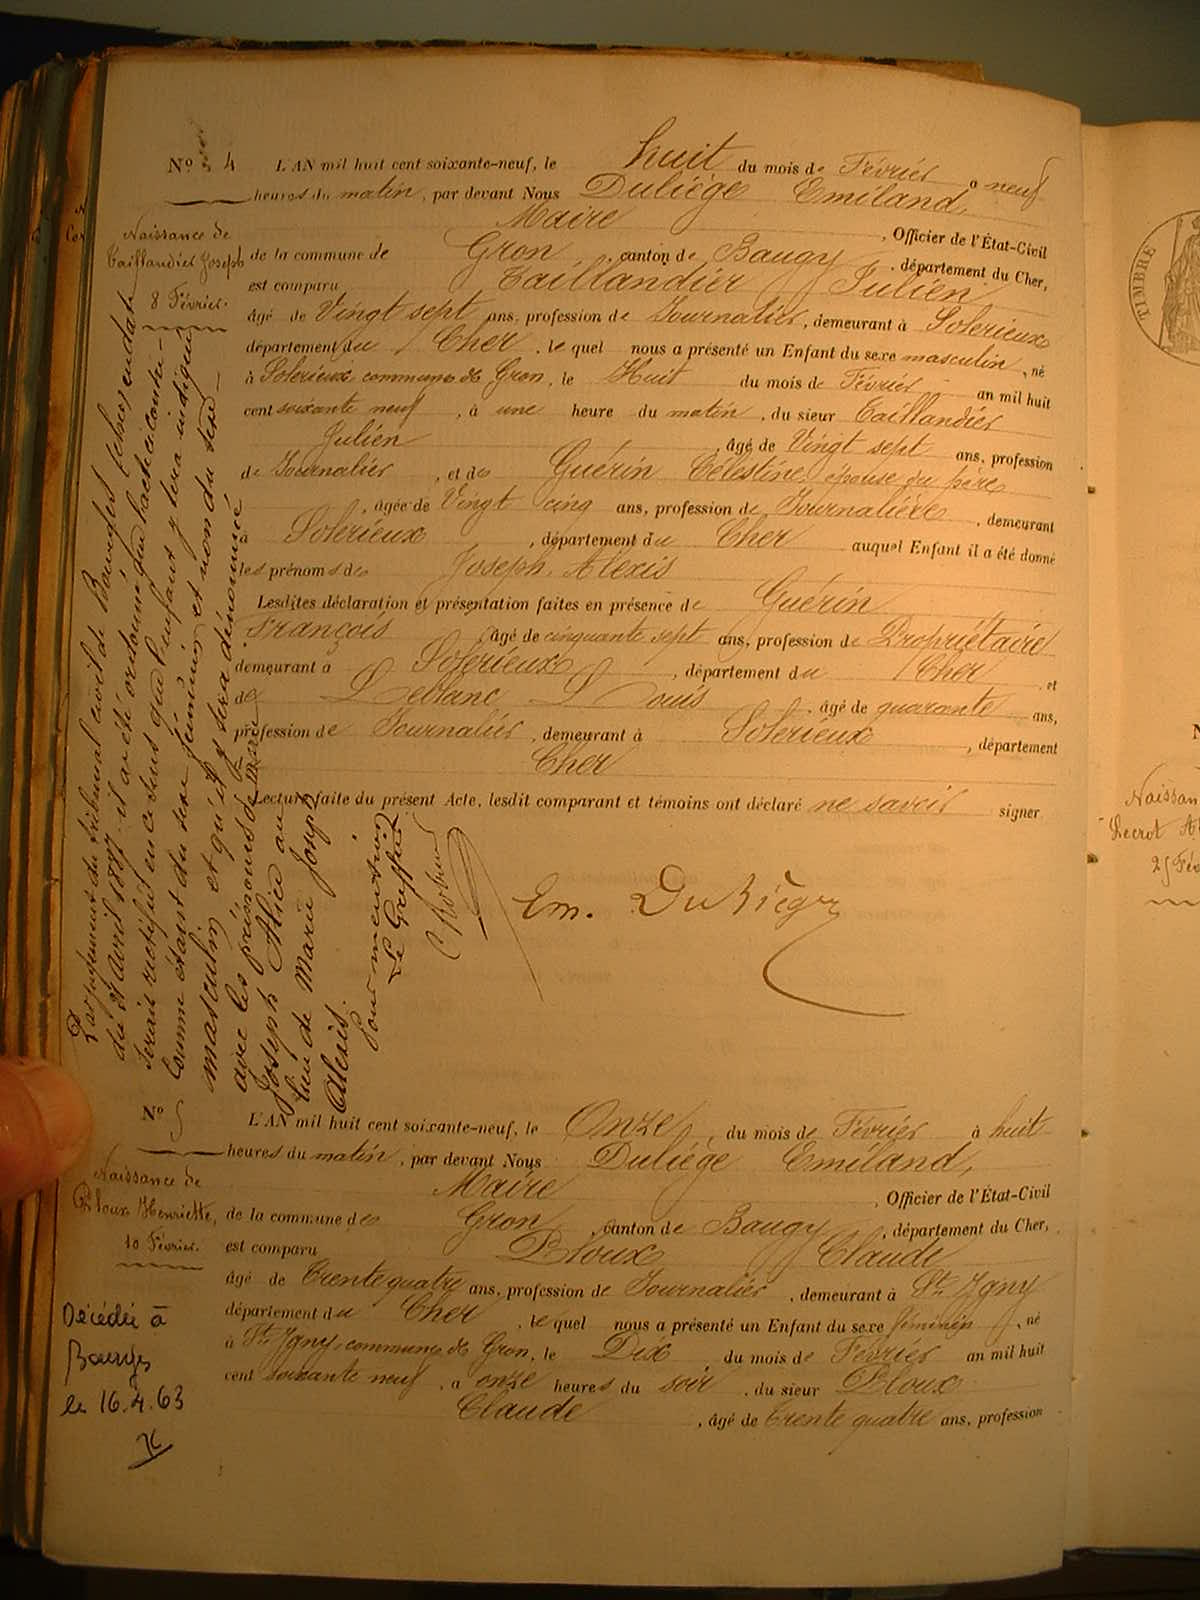 Nº 4
Naissance de
Taillandier Joseph
8 Février.
L'AN mil huit cent soixante-neuf, le huit du mois de Février a neuf
heures du matin, par devant Nous Duliège Emiland,
Maire , Officier de l'État-Civil
de la commune de Gron , canton de Baugy , département du Cher,
est comparu Taillandier Julien
âgé de Vingt sept ans, profession de Journalier, demeurant à Solerieux
département du Cher , le quel nous a présenté un Enfant du sexe masculin , né
à Solerieux commune de Gron, le Huit du mois de Février an mil huit
cent soixante neuf , à une heure du matin , du sieur Taillandier
Julien , âgé de Vingt sept ans, profession
de Journalier , et de Guérin Célestine épouse du père
, âgée de Vingt cinq ans, profession de Journalière , demeurant
à Solerieux , département du Cher auquel Enfant il a été donné
les prénoms de Joseph, Alexis
Lesdites déclaration et présentation faites en présence de Guérin
François âgé de cinquante sept ans, profession de Propriétaire
demeurant à Solerieux , département du Cher et
de Leblanc Louis , âgé de quarante ans,
profession de Journalier , demeurant à Solerieux , département
Cher
Lecture faite du présent Acte, lesdit comparant et témoins ont déclaré ne savoir signer
Em. Duliège
Par jugement du tribunal civil de Bourges en date
du 21 avril 1887, il a été ordonné que l'acte ci contre
serait rectifié en ce sens que l'enfant y sera indiqué
comme étant du sexe féminin et non du sexe
masculin, et qu'il y sera dénommé
avec les prénoms de Marie
Joseph Alice au
lieu de Marie Joseph
Alexis.
Pour mention
Le Greffier
Nº 5
Naissance de
Bloux Henriette,
10 Février.
L'AN mil huit cent soixante-neuf, le Onze , du mois de Février à huit
heures du matin , par devant Nous Duliège Emiland,
Maire , Officier de l'État-Civil
de la commune de Gron , canton de Baugy , département du Cher,
est comparu Bloux Claude
âgé de Trente quatre ans, profession de Journalier , demeurant à St. Igny
département du Cher , le quel nous a présenté un Enfant du sexe féminin , né
à St. Igny commune de Gron, le Dix , du mois de Février an mil huit
cent soixante neuf , a onze heures du soir , du sieur Bloux
Claude , âgé de Trente quatre ans, profession
Décédée à
Bourges
le 16.4.63
TIMBRE
Naissan
Lecrot
25 Fév